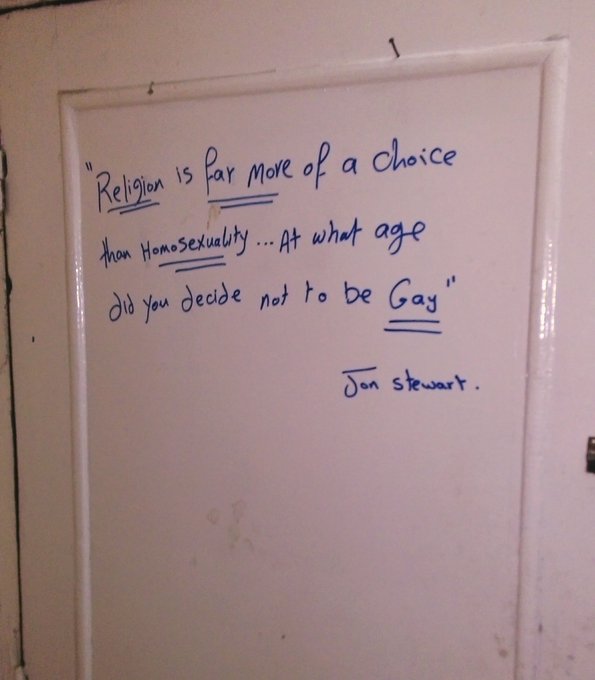 "Religion is far more of a choice
than Homosexuality... At what age
did you decide not to be Gay"
Jon stewart.